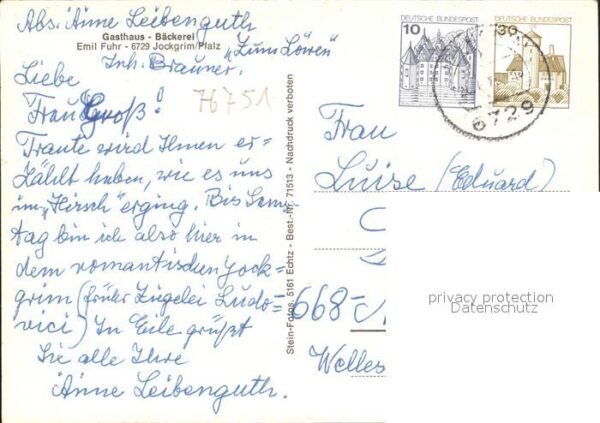 Abs: Anne Leibenguth
Gasthaus - Bäckerei
Emil Fuhr - 6729 Jockgrim/Pfalz
"Zum Löwen"
Inh. Brauner.
76751
Liebe
Frau Groß!
Traute wird Ihnen er-
zählt haben, wie es uns
im "Hirsch" erging. Bis Sams-
tag bin ich also hier in
dem romantischen Jock-
grim (früher Ziegelei Ludo-
vici) In Eile grüßt
Sie alle Ihre
Anne Leibenguth.
Stein-Fotos, 5161 Echtz - Best.-Nr. 71513 - Nachdruck verboten
10 DEUTSCHE BUNDESPOST
30 DEUTSCHE BUNDESPOST
6729
Frau
Luise (Eduard)
668-
Welles
privacy protection
Datenschutz